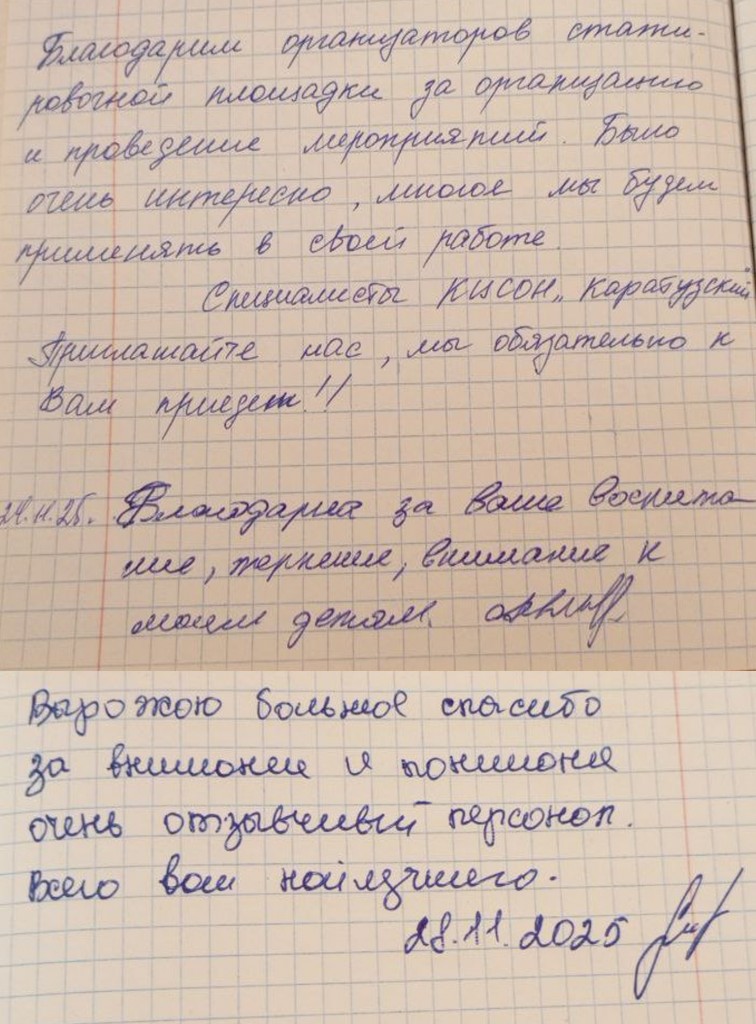 Благодарим организаторов стажи-
ровочной площадки за организацию
и проведение мероприятий. Было
очень интересно, многое мы будем
применять в своей работе.
Специалисты КЦСОН „Каратузский
Приглашайте нас, мы обязательно к
Вам приедем!!
24.11.25. Благодарна за ваше воспита-
ние, терпение, внимание к
моим детям.
Выражаю большое спасибо
за внимании и понимание
очень отзывчивый персонал.
Всего вам найлучшего.
28.11.2025